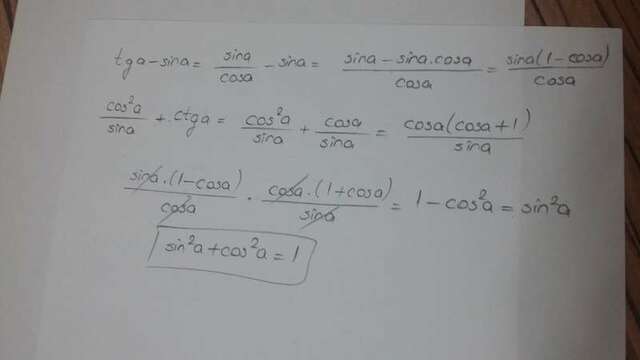 tga - sina = sina/cosa - sina = (sina - sina.cosa)/cosa = sina(1-cosa)/cosa
cos²a/sina + ctga = cos²a/sina + cosa/sina = cosa(cosa+1)/sina
sina.(1-cosa)/cosa · cosa.(1+cosa)/sina = 1 - cos²a = sin²a
sin²a + cos²a = 1